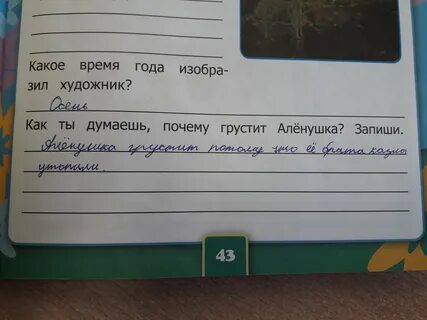 Какое время года изобра-
зил художник?
Осень
Как ты думаешь, почему грустит Алёнушка? Запиши.
Алёнушка грустит потому что её брата козла
утопили.
43